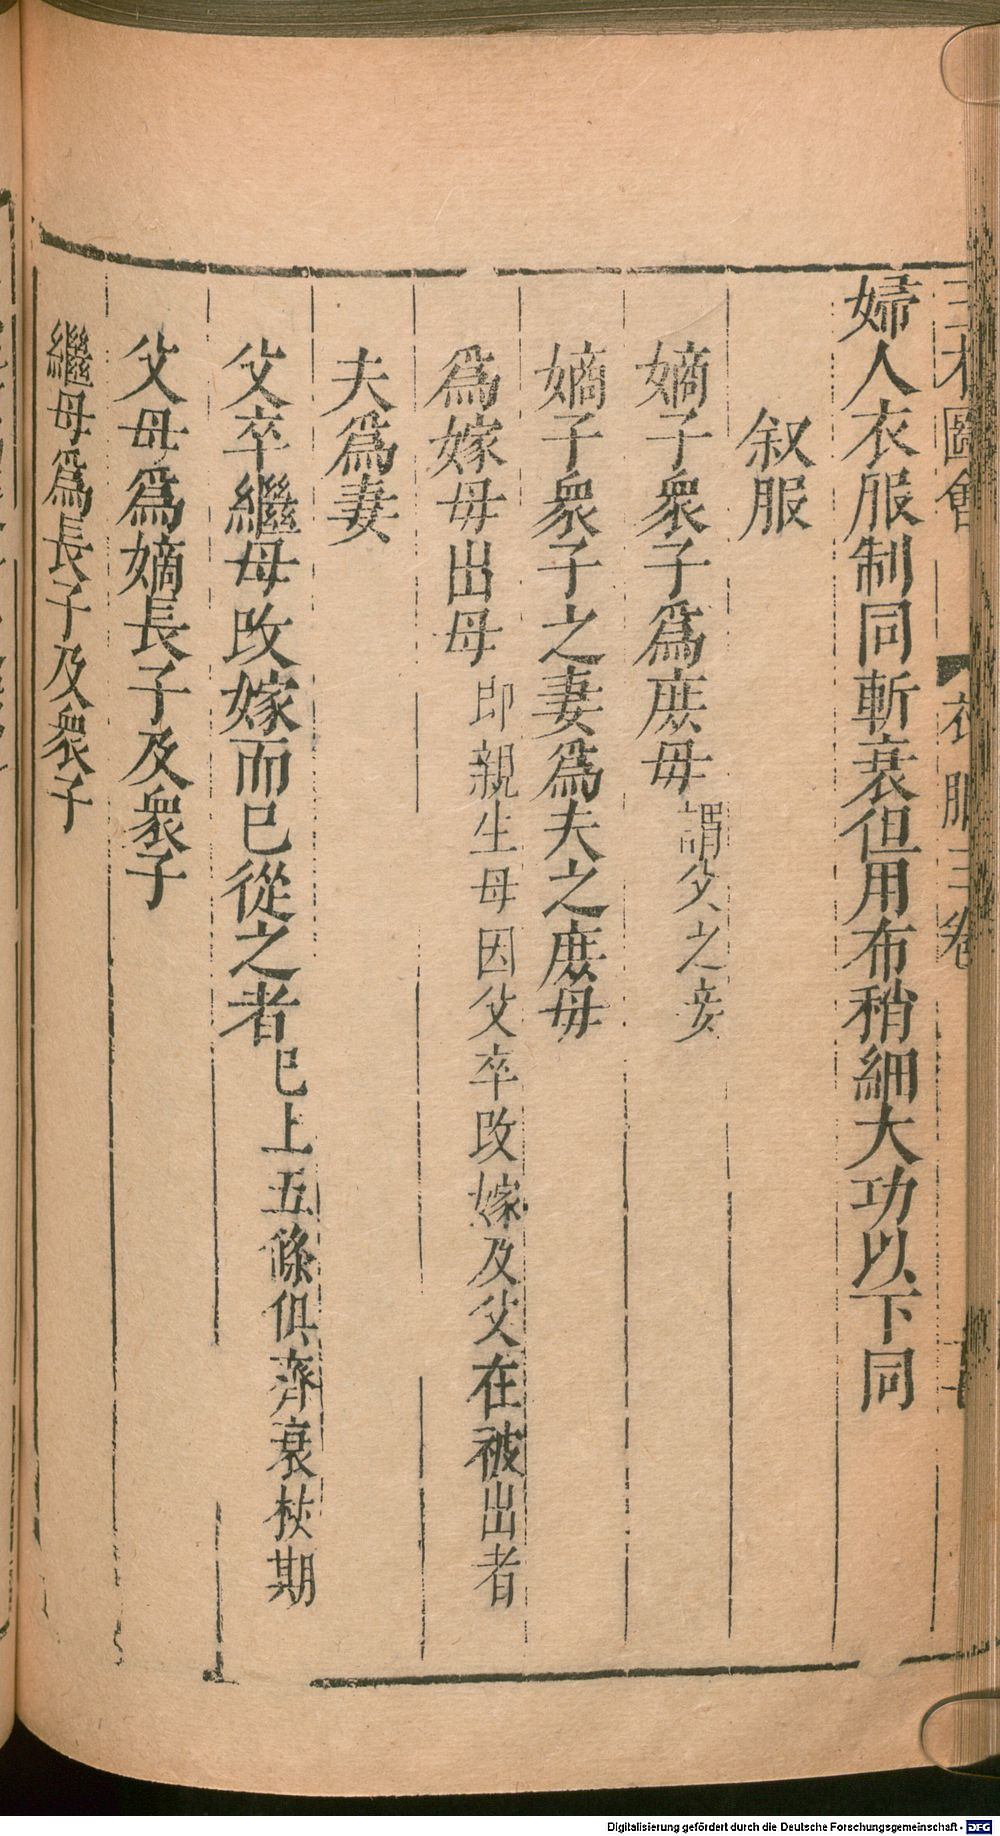 三才圖會 衣服三卷
婦人衣服制同斬衰但用布稍細大功以下同
叙服
嫡子衆子爲庶母謂父之妾
嫡子衆子之妻爲夫之庶母
爲嫁母出母即親生母因父卒改嫁及父在被出者
夫爲妻
父卒繼母改嫁而已從之者已上五條俱齊衰杖期
父母爲嫡長子及衆子
繼母爲長子及衆子
Digitalisierung gefördert durch die Deutsche Forschungsgemeinschaft - DFG